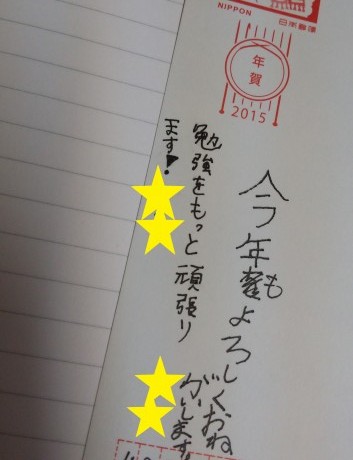 NIPPON 日本郵便
年賀
2015
今年もよろしくおね
がいします!
勉強をもっと頑張り
ます!